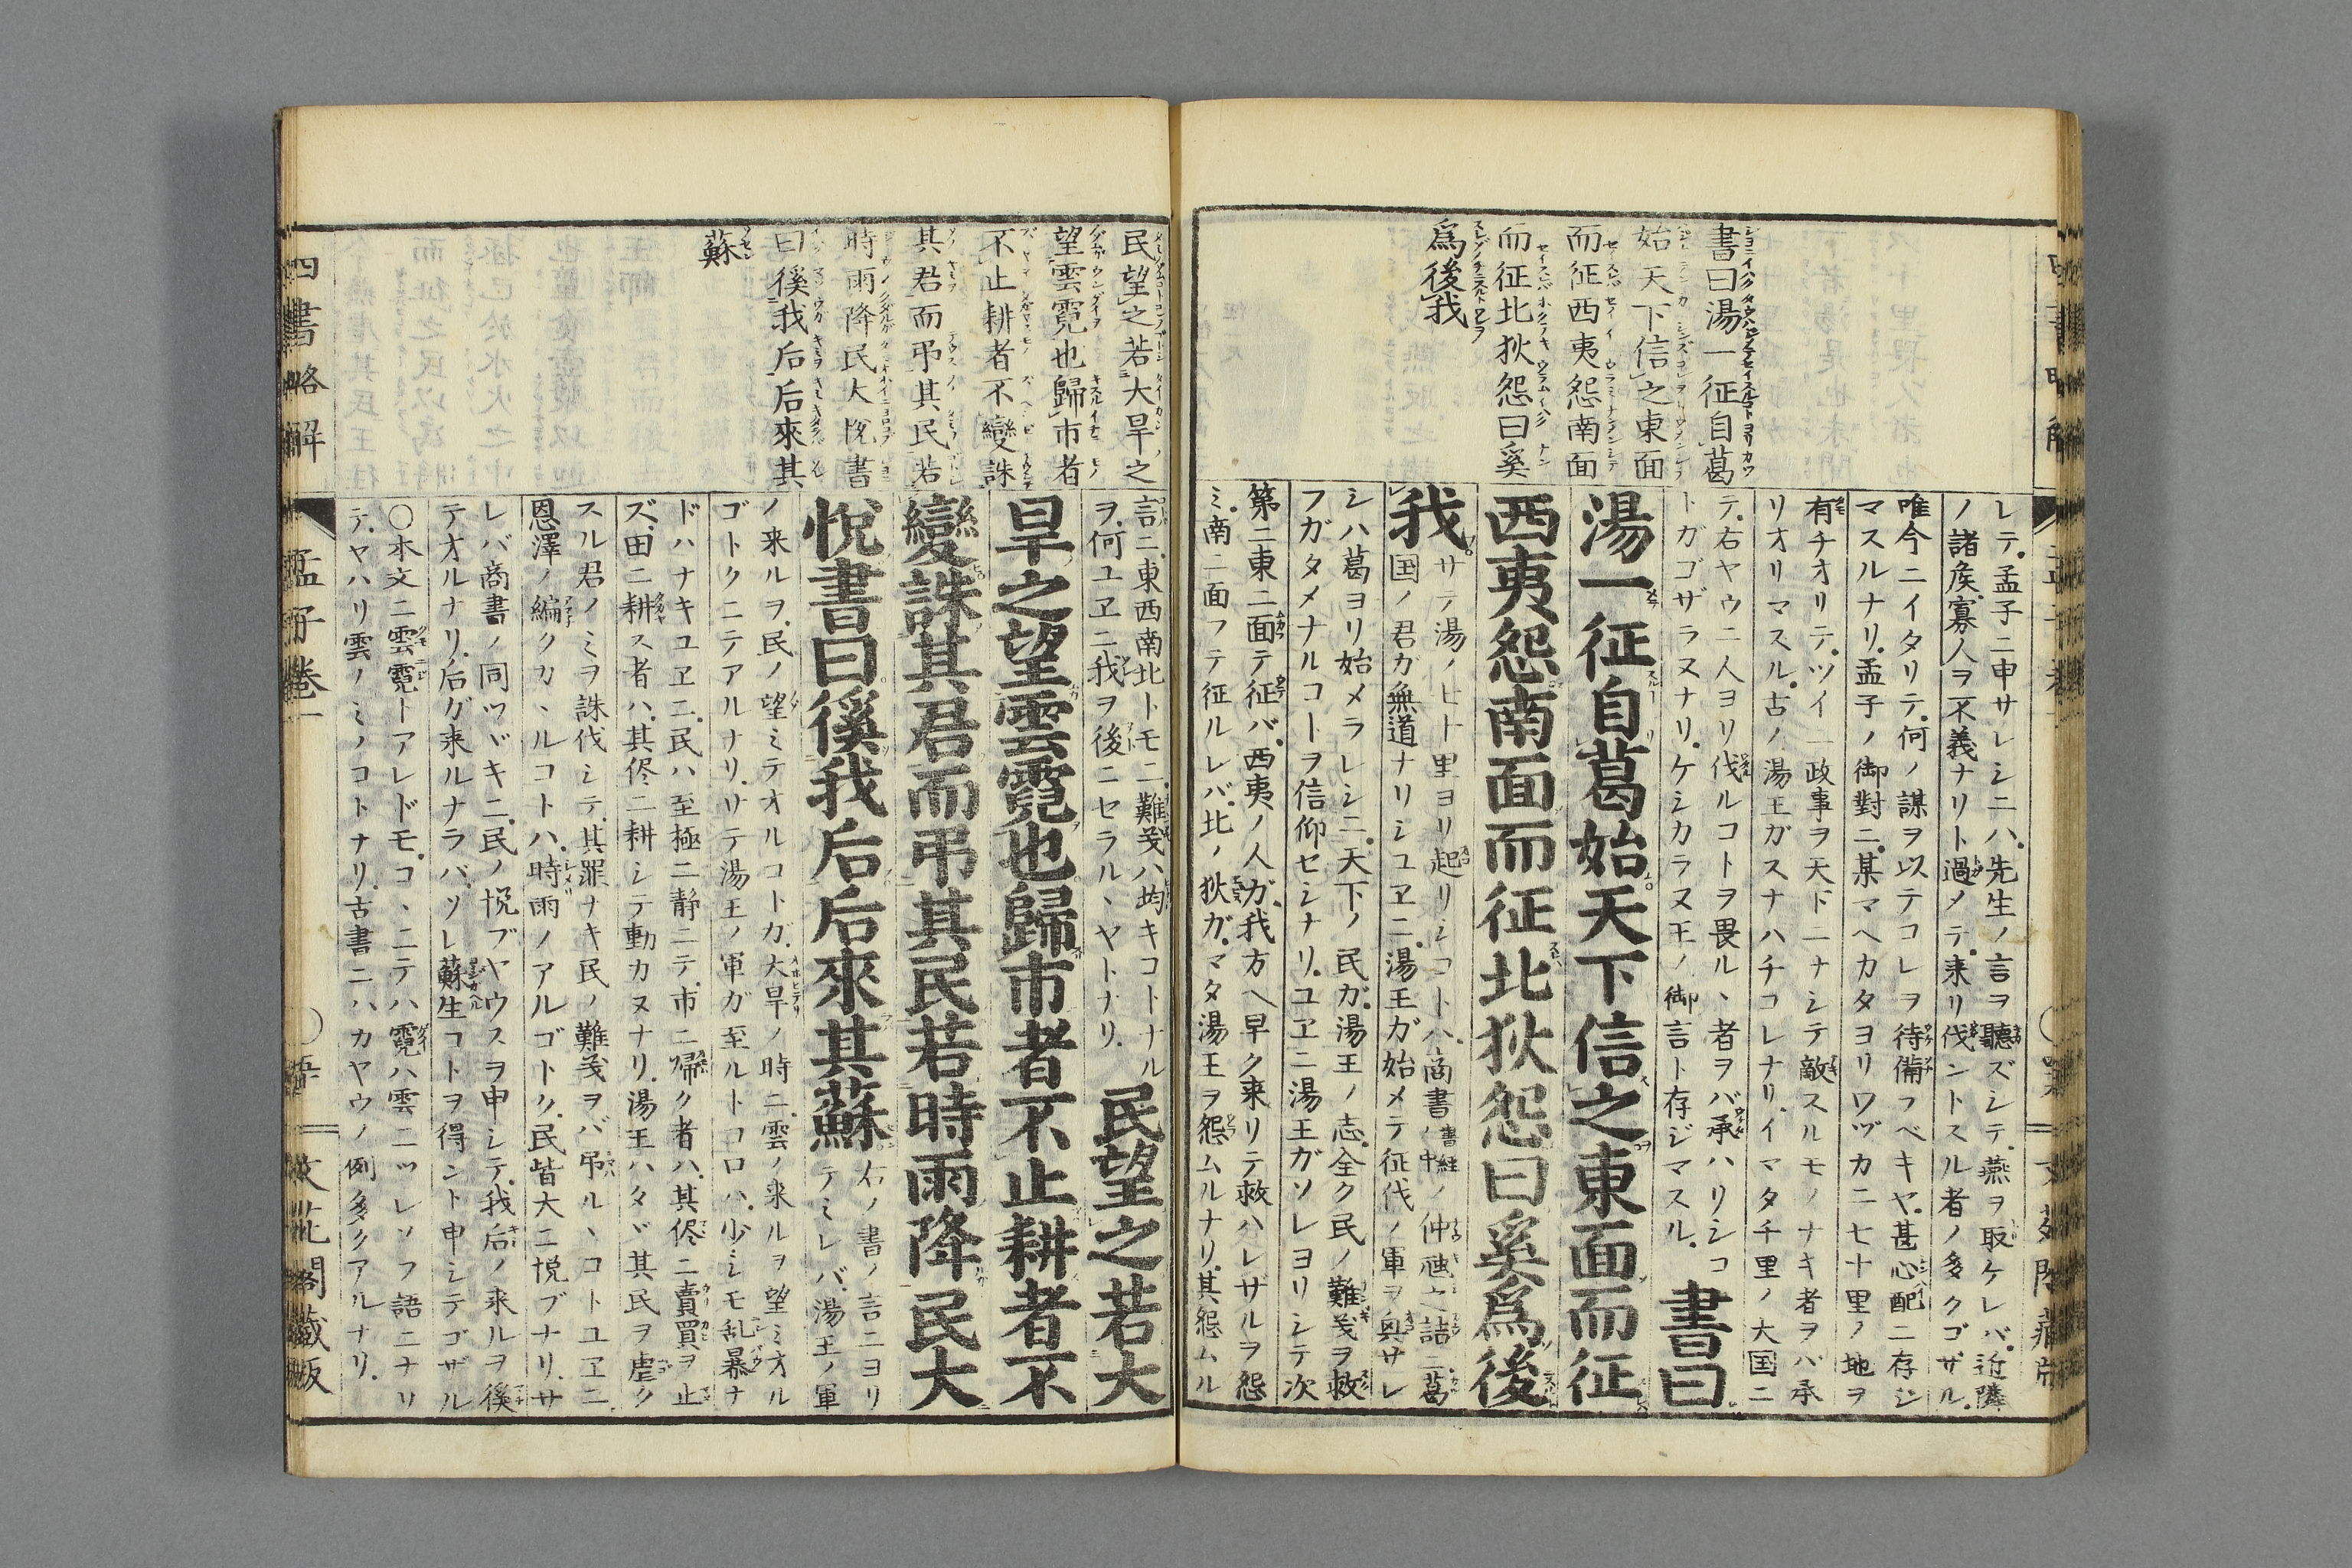 書曰湯一征自葛
始天下信之東面
而征西夷怨南面
而征北狄怨曰奚
爲後我
レテ孟子ニ申サレシニハ先生ノ言ヲ聽ズシテ燕ヲ取ケレバ近隣
ノ諸矦寡人ヲ不義ナリト過メテ来リ伐ントスル者ノ多クゴザル
唯今ニイタリテ何ノ謀ヲ以テコレヲ待備フベキヤ甚心配ニ存シ
マスルナリ孟子ノ御對ニ某マヘカタヨリワヅカニ七十里ノ地ヲ
有チオリテツイニ政事ヲ天下ニナシテ敵スルモノナキ者ヲバ承
リオリマスル古ノ湯王ガスナハチコレナリイマタチ里ノ大国ニ
テ右ヤウニ人ヨリ伐ルコトヲ畏ルヽ者ヲバ承ハリシコ
トガゴザラヌナリケシカラヌ王ノ御言ト存ジマスル 書曰
湯一征自葛始天下信之東面而征
西夷怨南面而征北狄怨曰奚爲後
我 サテ湯ノ七十里ヨリ起リシコトハ商書書經ノ中ノ仲虺之誥ニ葛
国ノ君ガ無道ナリシユヱニ湯王ガ始メテ征伐ノ軍ヲ興サレ
シハ葛ヨリ始メラレシニ天下ノ民ガ湯王ノ志全ク民ノ難義ヲ救
フガタメナルコトヲ信仰セシナリユヱニ湯王ガソレヨリシテ次
第ニ東ニ面テ征バ西夷ノ人ガ我方ヘ早ク来リテ救ハレザルヲ怨
ミ南ニ面フテ征ルレバ北ノ狄ガマタ湯王ヲ怨ムルナリ其怨ムル
民望之若大旱之
望雲霓也歸市者
不止耕者不變誅
其君而弔其民若
時雨降民大悅書
曰徯我后后來其
蘇
言ニ東西南北トモニ難義ハ均キコトナル
ヲ何ユヱニ我ヲ後ニセラルヽヤトナリ 民望之若大
旱之望雲霓也歸市者不止耕者不
變誅其君而弔其民若時雨降民大
悅書曰徯我后后來其蘇 右ノ書ノ言ニヨリ
テミレバ湯王ノ軍
ノ来ルヲ民ノ望ミテオルコトガ大旱ノ時ニ雲ノ来ルヲ望ミオル
ゴトクニテアルナリサテ湯王ノ軍ガ至ルトコロハ少シモ乱暴ナ
ドハナキユヱニ民ハ至極ニ静ニテ市ニ帰ク者ハ其侭ニ賣買ヲ止
ズ田ニ耕ス者ハ其侭ニ耕シテ動カヌナリ湯王ハタヾ其民ヲ虐ク
スル君ノミヲ誅伐シテ其罪ナキ民ノ難義ヲバ弔ルヽコトユヱニ
恩澤ノ編クカヽルコトハ時雨ノアルゴトク民皆大ニ悦ブナリサ
レバ商書ノ同ツヾキニ民ノ悦ブヤウスヲ申シテ我后ノ来ルヲ徯
テオルナリ后ガ来ルナラバソレ蘇生コトヲ得ント申シテゴザル
〇本文ニ雲霓トアレドモコヽニテハ霓ハ雲ニツレソフ語ニナリ
テヤハリ雲ノミノコトナリ古書ニハカヤウノ例多クアルナリ
四書略解 孟子卷一 文花閣藏版